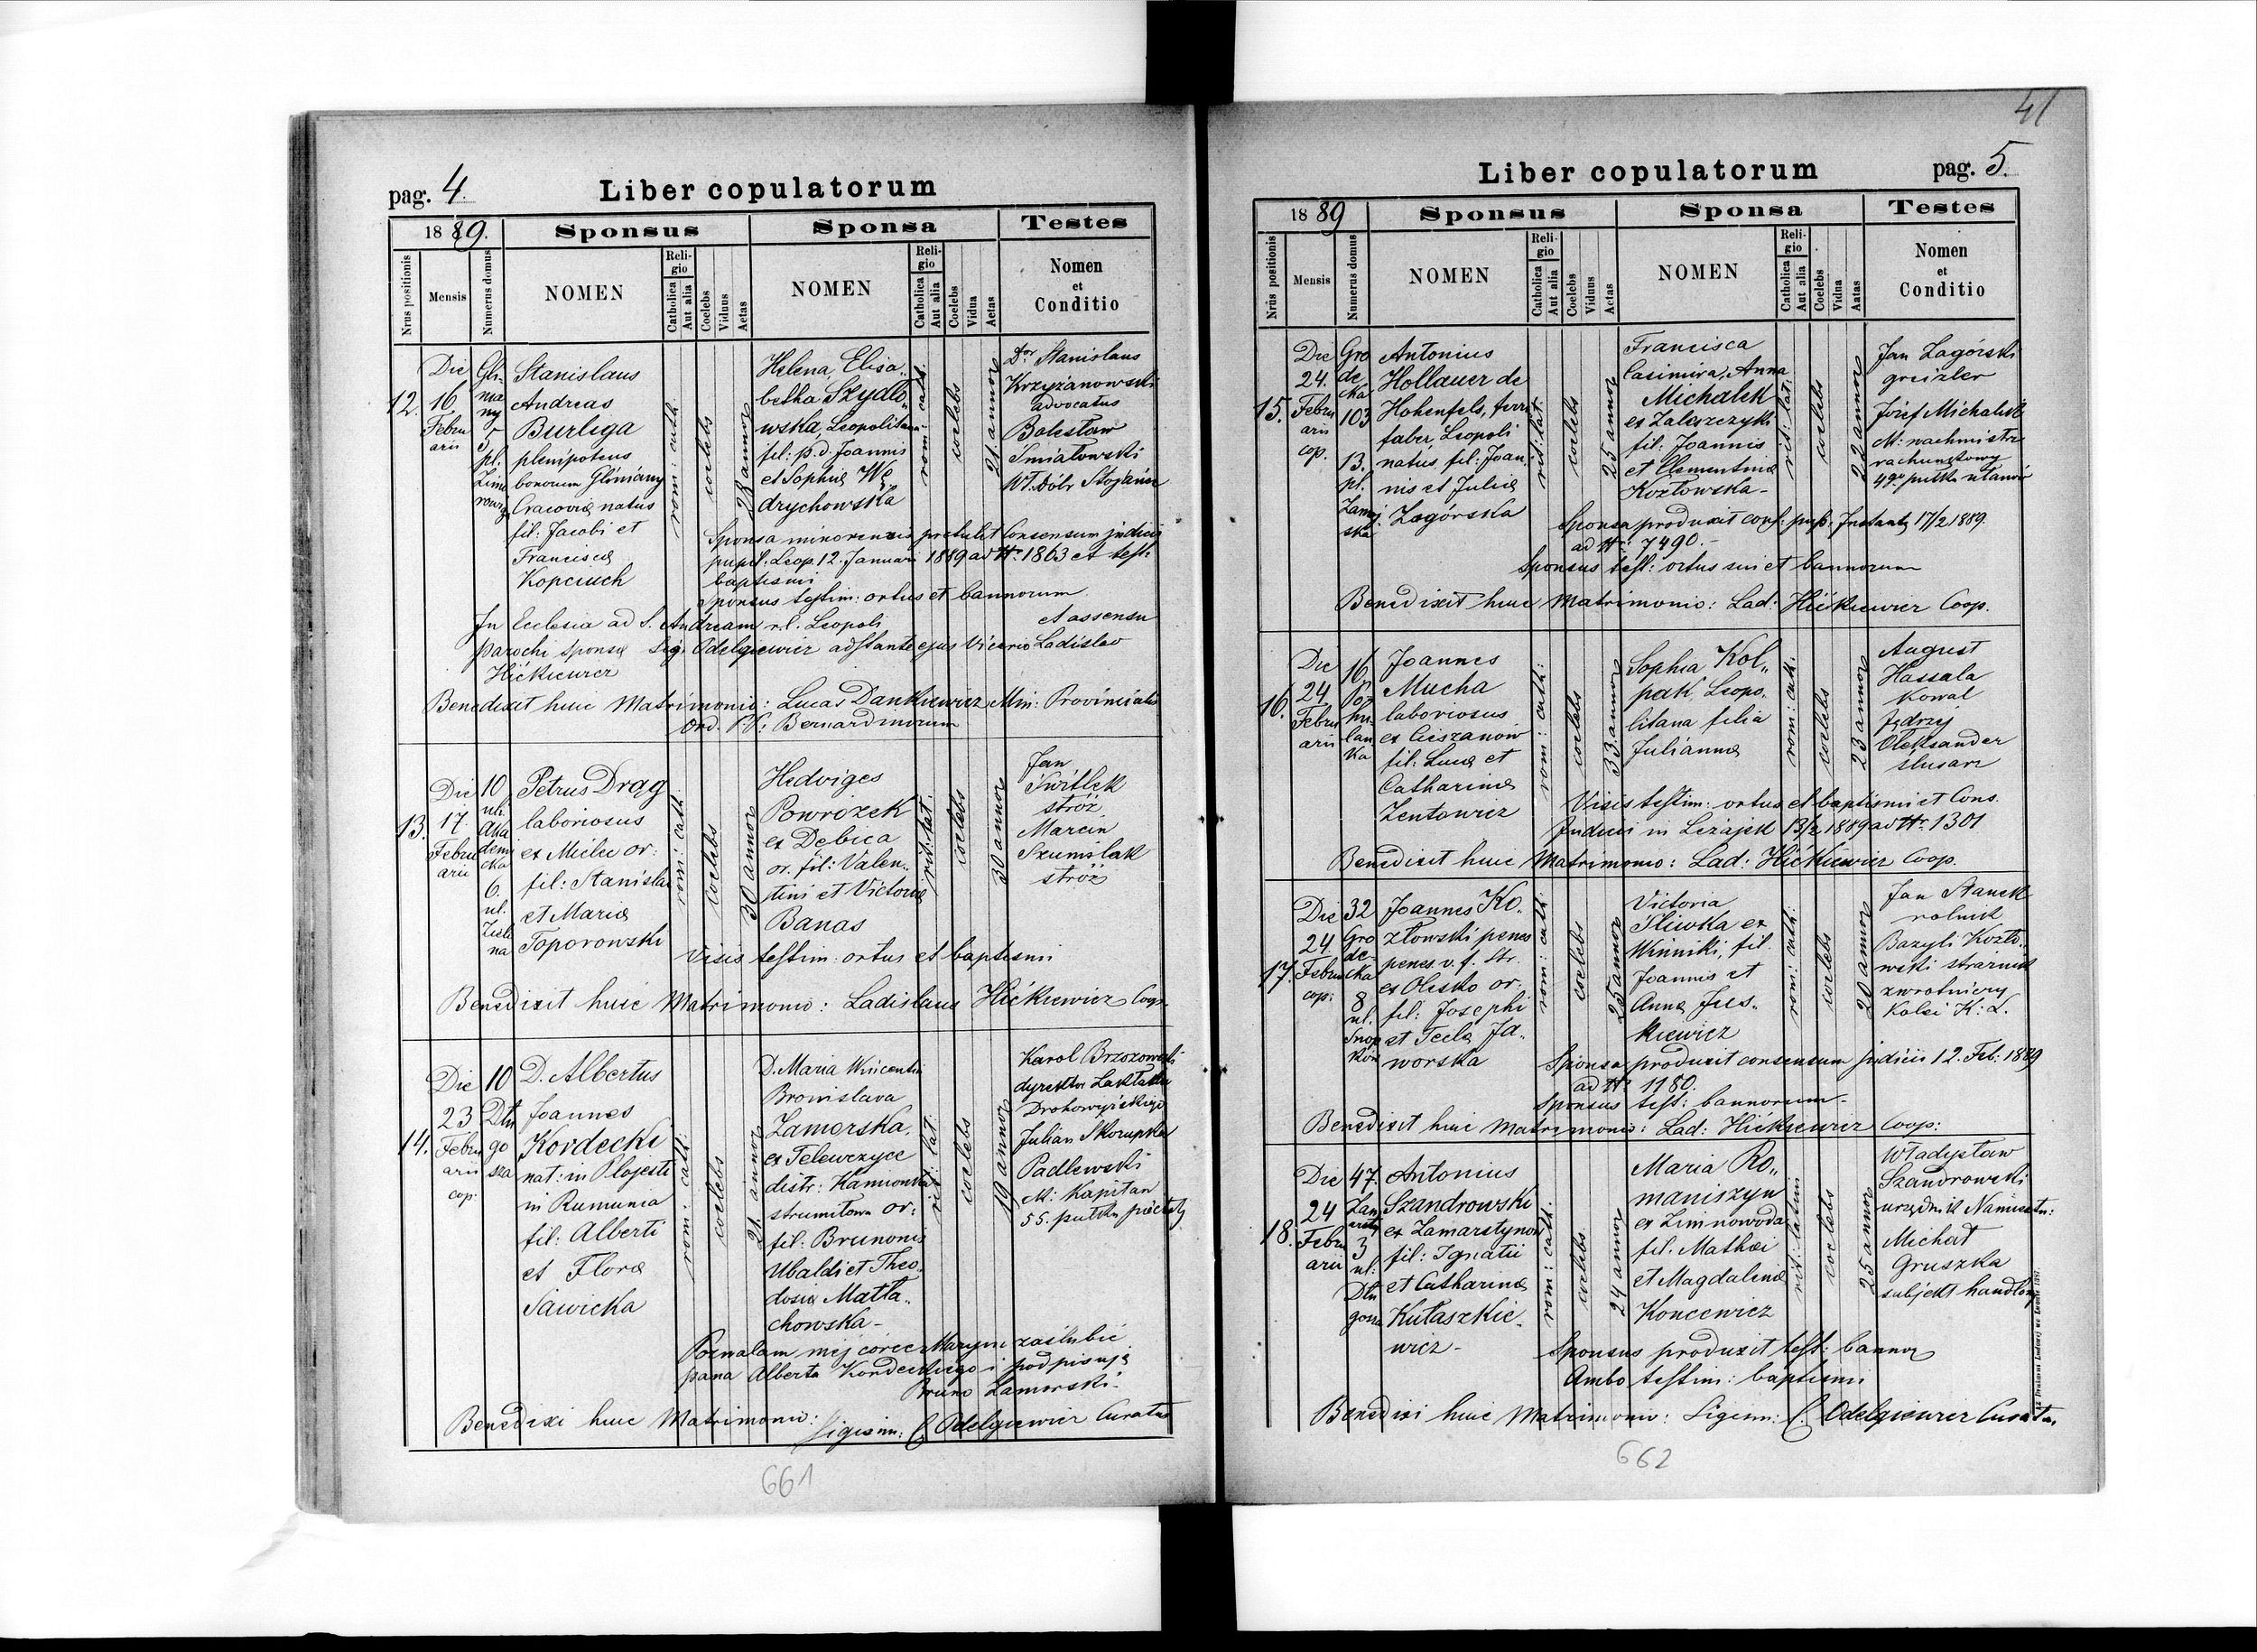 pag. 4.
Liber copulatorum
1889.
Sponsus
Sponsa
Testes
Nrus positionis
Mensis
Numerus domus
NOMEN
Religio
Catholica
Aut alia
Coelebs
Viduus
Aetas
NOMEN
Religio
Catholica
Aut alia
Coelebs
Vidua
Aetas
Nomen
et
Conditio
12.
Die
16
Febru
arii
Gli-
nia
ny
5
pl.
Zimo
rowicza
Stanislaus
Andreas
Burliga
plenipotens
bonorum Gliniany
Cracoviæ natus
fil: Jacobi et
Franciscæ
Kopciuch
rom: cath.
coelebs
28 annor
Helena Elisa„
betha Szydło„
wska, Leopolitana
fil: p.d. Joannis
et Sophiæ Wę
drychowska
rom: cath.
coelebs
21 annor
Dor Stanislaus
Krzyżanowski
advocatus
Bolesław
Śmiałowski
Wł. dóbr Stojaniec
Sponsa minorensis protulit Consensum judicii
pupil. Leop. 12. Januarii 1889 ad No 1863 et test:
baptismi
Sponsus testim: ortus et bannorum
In Ecclesia ad S. Andream r.l. Leopoli et assensu
parochi sponsæ Sig. Odelgiewicz adstante ejus Vicario Ladislao
Hićkiewicz
Benedixit huic Matrimonio: Lucas Dankiewicz Min: Provincialis
Ord. P.P: Bernardinorum
13.
Die
17.
Febru
arii
10
uli.
Aka
demi
cka
6.
ul.
Ziele
na
Petrus Drąg
laboriosus
ex Mielec or:
fil: Stanislai
et Mariæ
Toporowski
rom: cath
coelebs
30 annor
Hedviges
Powrózek
ex Dębica
or. fil: Valen„
tini et Victoriæ
Banas
rit: lat.
coelebs
30 annor
Jan
Świtlek
stróż
Marcin
Szumilak
stróż
Visis testim: ortus et baptismi
Benedixit huic Matrimonio: Ladislaus Hićkiewicz Coop.
14.
Die
23
Febru
arii
cop:
10
Dłu
go
sza
D. Albertus
Joannes
Kordecki
nat: in Plojesti
in Rumunia
fil: Alberti
et Floræ
Sawicka
rom: cath:
coelebs
21 annor
D. Maria Vincentia
Bronislava
Zamorska,
ex Telewczyce
distr: Kamionka
strumiłowa or:
fil: Brunonis
Ubaldi et Theo„
dosiæ Matła„
chowska-
rit: lat.
coelebs
19 annor
Karol Brzozowski
dyrektor Zakładu
Drohowyżskiego
Julian Skorupka
Padlewski
M: Kapitan
55. pułku piechoty
Pozwalam mej córce Maryi zaślubić
pana Alberta Kordeckiego i podpisuję
Bruno Zamorski-
Benedixi huic Matrimonio: Sigism: C. Odelgiewicz Curatus
661
41
Liber copulatorum
pag. 5.
1889
Sponsus
Sponsa
Testes
Nrus positionis
Mensis
Numerus domus
NOMEN
Religio
Catholica
Aut alia
Coelebs
Viduus
Aetas
NOMEN
Religio
Catholica
Aut alia
Coelebs
Vidua
Aatas
Nomen
et
Conditio
15.
Die
24.
Febru
arii
cop.
Gro
de
cka
103
13.
pl.
Zamoj.
ska
Antonius
Hollauer de
Hohenfels, ferri
faber Leopoli
natus, fil: Joan„
nis et Juliæ
Zagórska
rit: lat:
coelebs
25 annor
Francisca
Casimira, Anna
Michałek
ex Zaleszczyki
fil: Joannis
et Clementinæ
Kozłowska-
rit: lat.
coelebs
22 annor
Jan Zagórski
greizler
Józef Michałek
M: wachmistrz
rachunkowy
4go pułku ułanów
ad No: 7490.-
Sponsus test: ortus sui et bannorum
Benedixit huic Matrimonio: Lad: Hićkiewicz Coop.
16.
Die
24
Febru
arii
16
Po„
hu„
lan
ka
Joannes
Mucha
laboriosus
ex Cieszanów
fil: Lucæ et
Catharinæ
Zentowicz
rom: cath:
coelebs
33 annor
Sophia Koł„
pak Leopo„
litana filia
Juliannæ
rom: cath.
coelebs
23 annor
August
Hassala
kowal
Jędrzej
Oleksander
ślusarz
Visis testim: ortus et baptismi et Cons.
Judicii in Leżajsk 13/2 1889 ad No: 1301
Benedixit huic Matrimonio: Lad: Hićkiewicz Coop.
17.
Die
24
Febru
cop:
32
Gro
de-
cka
8
ul.
Snop
kow
Joannes Ko„
złowski penes
penes v.f. Str.
ex Olesko or:
fil: Josephi
et Teclæ Ja„
worska
rom: cath
coelebs
25 annor
Victoria
Śliwka ex
Winniki, fil.
Joannis et
Annæ Jus„
kiewicz
rom: cath:
coelebs
20 annor
Jan Stanek
rolnik
Bazyli Kozło„
wski strażnik
zwrotniczy
kolei K: L.
Sponsa produxit consensum judicii 12. Feb: 1889
ad No: 1180.
Sponsus test: bannorum-
Benedixit huic Matrimonio: Lad: Hićkiewicz Coop:
18.
Die
24
Febru
arii
47.
3
ul:
Dłu
gosza
Antonius
Szandrowski
ex Zamarstynow
fil: Ignatii
et Catharinæ
Kułaszkie„
wicz-
rom: cath.
coelebs
24 annor
Maria Ro„
maniszyn
ex Zimnowoda
fil. Mathæi
et Magdalenæ
Koncewicz
rit: latini
coelebs
25 annor
Władysław
Szandrowski
urzędnik Namiestn:
Michał
Gruszka
subjekt handlowy
Sponsus produxit test: bannor
Ambo testim: baptismi
Benedixi huic Matrimonio: Sigism: C. Odelgiewicz Curatus
662